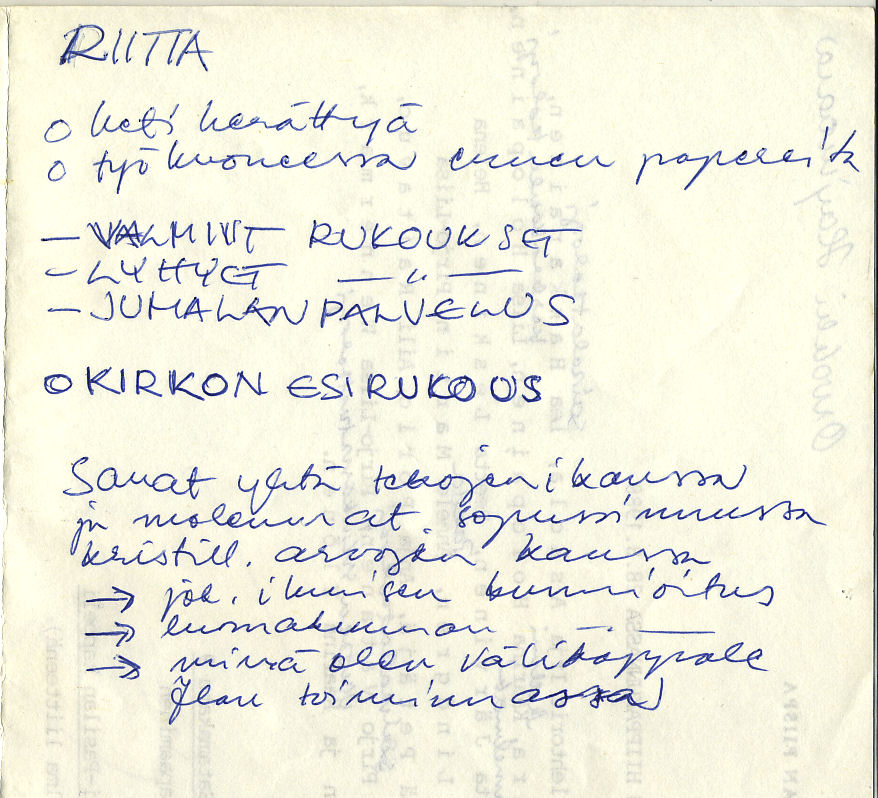 RIITTA
o heti herättyä
o työhuoneessa ennen papereita
— VALMIIT RUKOUKSET
— LYHYET — " —
— JUMALANPALVELUS
o KIRKON ESIRUKOUS
Sanat yhtä tekojeni kanssa
ja molemmat sopusoinnussa
kristill. arvojen kanssa
→ jok. ihmisen kunnioitus
→ luomakunnan — " —
→ minä olen välikappale
Jlan toiminnassa